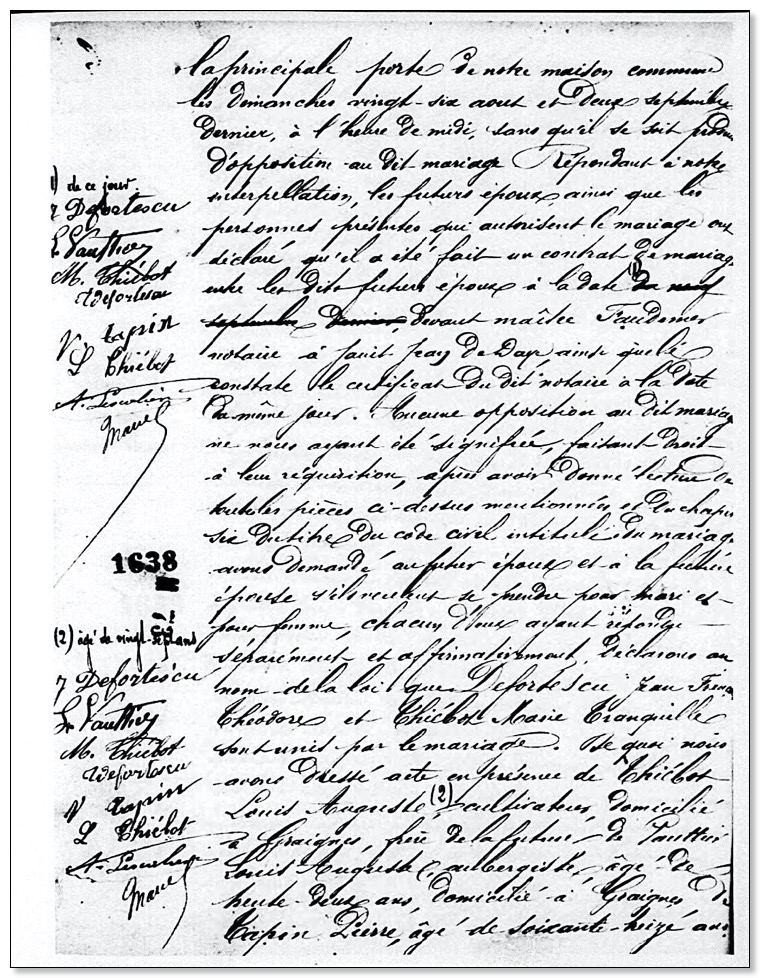 la principale porte de notre maison commune
les dimanches vingt-six aout et deux septembre
dernier, à l'heure de midi, sans qu'il se soit
d'opposition au dit mariage Répondant à notre
interpellation, les futurs époux ainsi que les
personnes présentes qui autorisent le mariage ont
déclaré qu'il a été fait un contrat de mariage
entre les dits futurs époux à la date (1) du neuf
septembre dernier, devant maître
notaire à Saint Jean de Daye ainsi que le
constate le certificat du dit notaire à la date
du même jour. Aucune opposition au dit mariage
ne nous ayant été signifiée, faisant droit
à leur réquisition, après avoir donné lecture de
toutes les pièces ci-dessus mentionnées et du chapitre
six du titre du code civil intitulé du mariage
avons demandé au futur époux et à la future
épouse s'ils veulent se prendre pour mari et
pour femme, chacun d'eux ayant répondu
séparément et affirmativement, déclarons au
nom de la loi que Defortescu Jean
Théodore et Thiébot Marie Tranquille
sont unis par le mariage. De quoi nous
avons dressé acte en présence de Thiébot
Louis Auguste (2), cultivateur, domicilié
à Graignes, frère de la future, de
Louis Auguste, aubergiste, âgé de
trente-deux ans, domicilié à Graignes de
Lapin Pierre, âgé de soixante-treize ans
1) de ce jour.
T Defortescu
L Vauthier
M. Thiébot
T Defortescu
V. Lapin
L Thiébot
1638
(2) âgé de vingt-sept ans
T Defortescu
L Vauthier
M. Thiébot
T Defortescu
V Lapin
L Thiébot